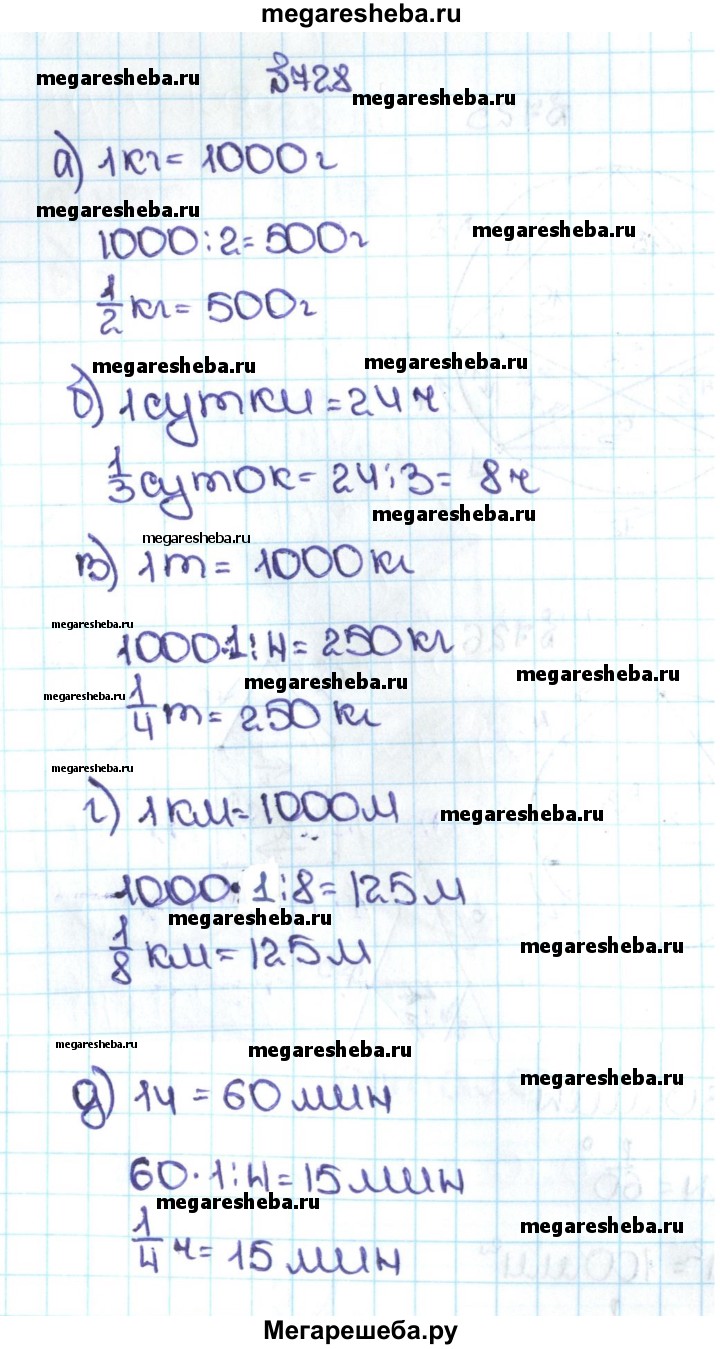 megaresheba.ru
megaresheba.ru
№728
megaresheba.ru
а) 1кг = 1000г
megaresheba.ru
1000:2=500г
megaresheba.ru
1/2 кг = 500г
megaresheba.ru
megaresheba.ru
б) 1 сутки = 24 ч
1/3 суток = 24:3 = 8ч
megaresheba.ru
megaresheba.ru
в) 1т = 1000кг
megaresheba.ru
1000·1:4=250кг
megaresheba.ru
megaresheba.ru
megaresheba.ru
1/4 т = 250кг
megaresheba.ru
г) 1км=1000м
megaresheba.ru
1000·1:8=125м
megaresheba.ru
1/8 км=125м
megaresheba.ru
megaresheba.ru
megaresheba.ru
megaresheba.ru
д) 1ч = 60 мин
60·1:4=15мин
megaresheba.ru
1/4 ч=15мин
megaresheba.ru
Мегарешеба.ру